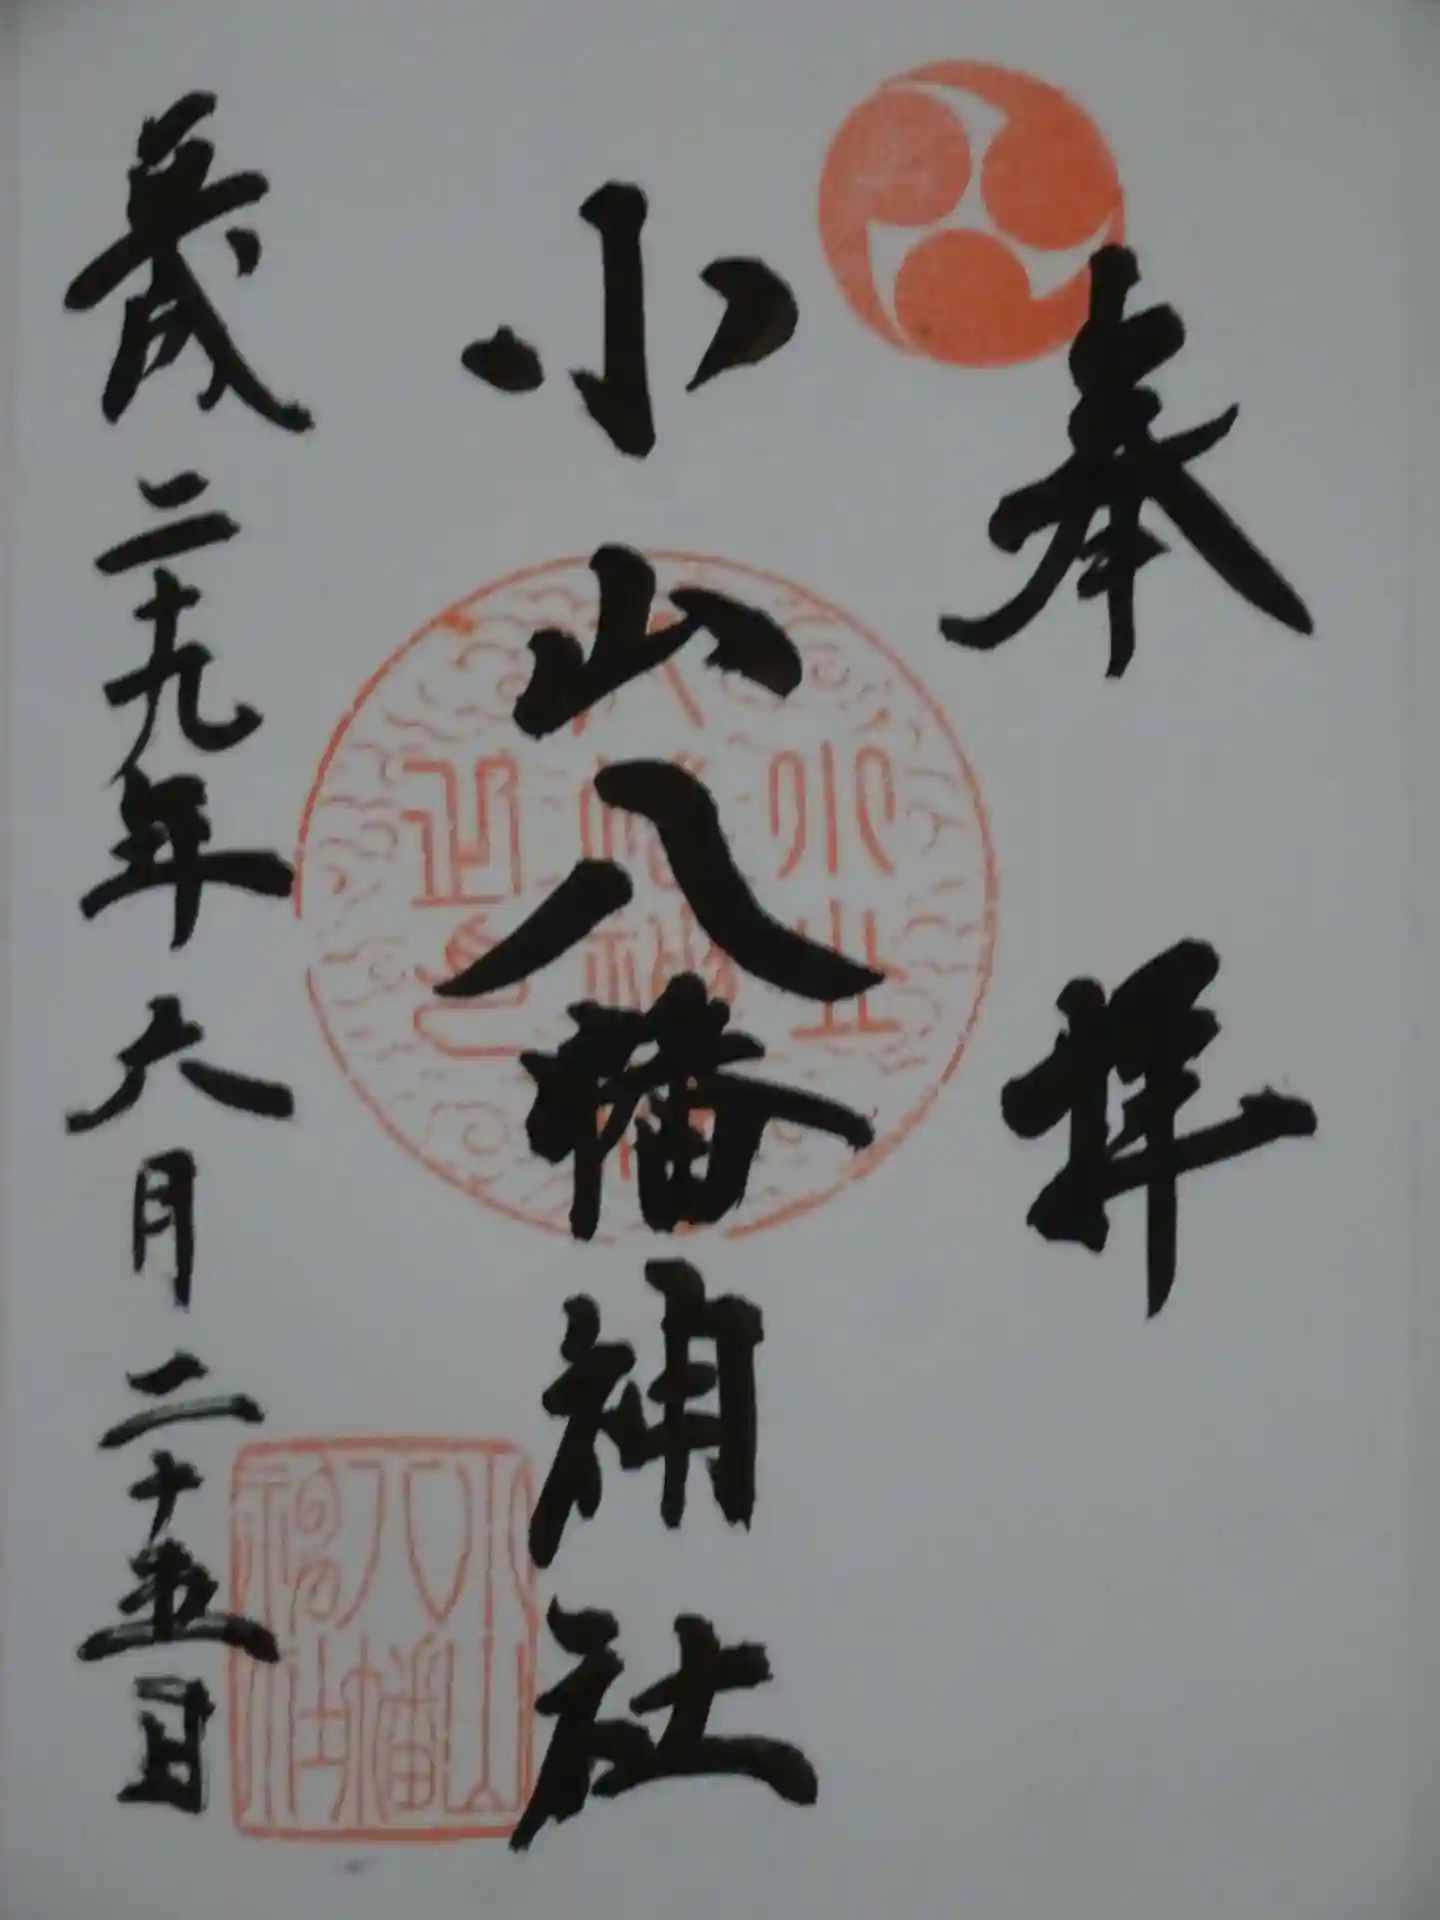 奉拝
小山八幡神社
平成二十九年六月二十五日
小山
八幡
神社